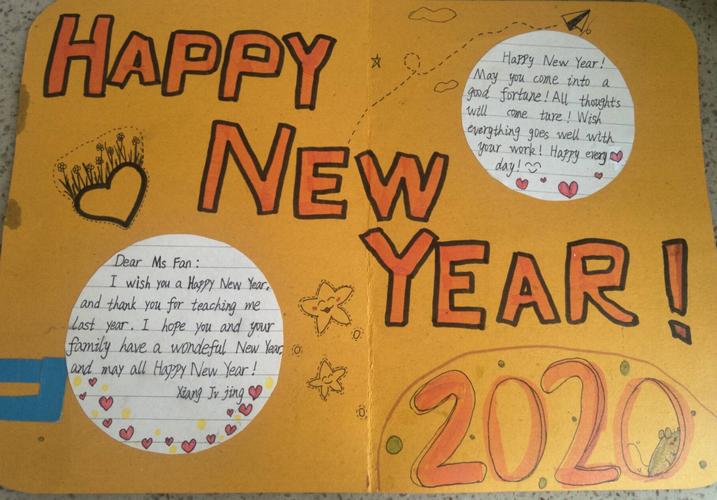 HAPPY
NEW
YEAR!
2020
Happy New Year!
May you come into a
good fortune! All thoughts
will come ture! Wish
everything goes well with
your work! Happy every
day!
Dear Ms Fan:
I wish you a Happy New Year,
and thank you for teaching me
last year. I hope you and your
family have a wondeful New Year,
and may all Happy New Year!
Xiang Jv jing